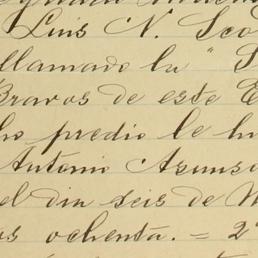 Luis N. Sco
llamado la "S
Bravos de este E
ho predio le hu
Antonio Asunso
el dia seis de N
os ochenta. = 2